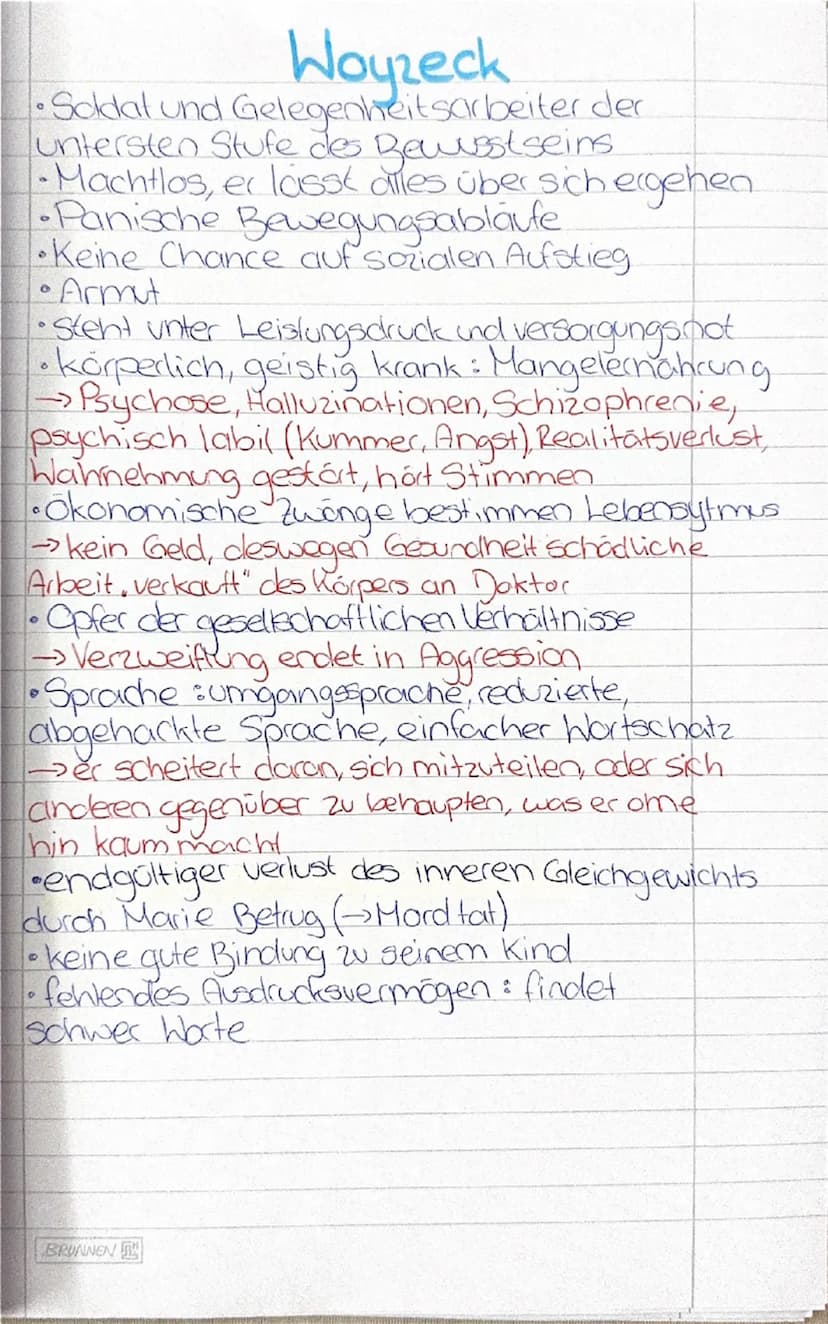 Woyzeck
• Soldat und Gelegenheitsarbeiter der
untersten Stufe des Bewusstseins
• Machtlos, er lässt alles über sich ergehen
• Panische Bewegungsabläufe
• Keine Chance auf sozialen Aufstieg
• Armut
• steht unter Leistungsdruck und versorgungsnot
• körperlich, geistig krank: Mangelernährung
→ Psychose, Halluzinationen, Schizophrenie,
psychisch labil (Kummer, Angst), Realitätsverlust,
Wahrnehmung gestört, hört Stimmen
• Ökonomische Zwänge bestimmen Lebensytmus
→ kein Geld, deswegen Gesundheit schädliche
Arbeit „verkauft“ des Körpers an Doktor
• Opfer der gesellschaftlichen Verhältnisse
→ Verzweiflung endet in Aggression
• Sprache: umgangssprache, reduzierte,
abgehackte Sprache, einfacher Wortschatz
→ er scheitert daran, sich mitzuteilen, oder sich
anderen gegenüber zu behaupten, was er ome
hin kaum macht
• endgültiger verlust des inneren Gleichgewichts
durch Marie Betrug (→ Mordtat)
• keine gute Bindung zu seinem Kind
• fehlendes Ausdrucksvermögen: findet
schwer Worte
BRUNNEN